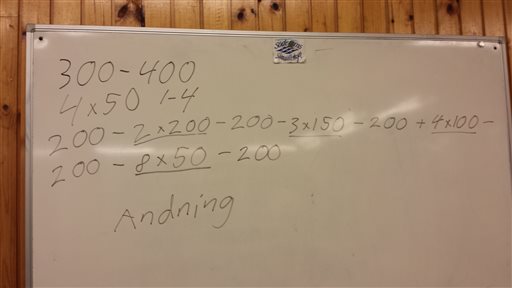 300-400
4x50 1-4
200-2x200-200-3x150-200+4x100-
200-8x50-200
Andning